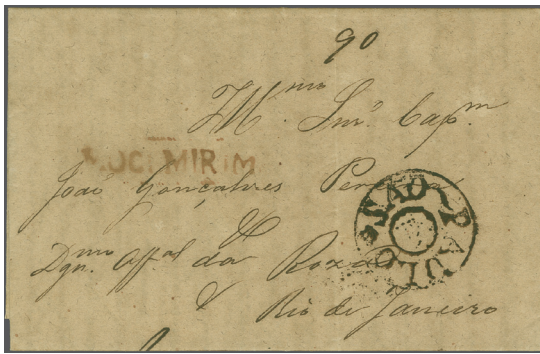 90
Illmo. Snr. Capm.
MOGI MIRIM
João Gonçalves Pereira
SÃO PAULO
&
Dgnmo. Offal da Roza
& Rio de Janeiro